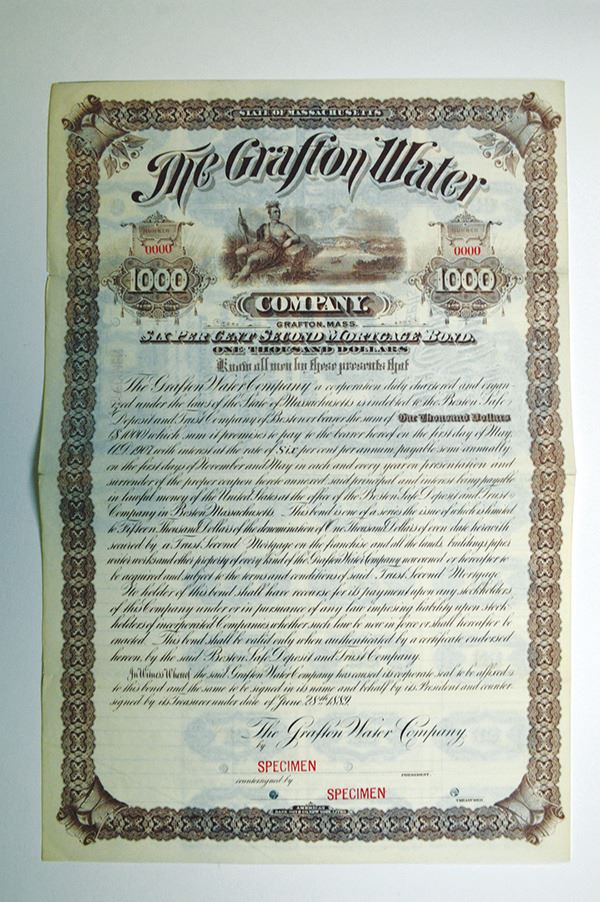 STATE OF MASSACHUSETTS
The Grafton Water
NUMBER
0000
NUMBER
0000
1000
1000
COMPANY,
GRAFTON, MASS.
SIX PER CENT SECOND MORTGAGE BOND.
ONE THOUSAND DOLLARS
Know all men by these presents that
The Grafton Water Company a corporation duly chartered and organ-
ized under the laws of the State of Massachusetts is indebted to the Boston Safe
Deposit and Trust Company of Boston or bearer the sum of One Thousand Dollars
($1000) which sum it promises to pay to the bearer hereof on the first day of May,
A.D. 1907 with interest at the rate of Six per cent per annum, payable semi-annually
on the first days of November and May in each and every year on presentation and
surrender of the proper coupon hereto annexed said principal and interest being payable
in lawful money of the United States at the office of the Boston Safe Deposit and Trust
Company in Boston Massachusetts. This bond is one of a series the issue of which is limited
to Fifteen Thousand Dollars of the denomination of One Thousand Dollars of even date herewith
secured by a Trust Second Mortgage on the franchise and all the lands, buildings, pipes
water works and other property of every kind of the Grafton Water Company now owned or hereafter to
be acquired and subject to the terms and conditions of said Trust Second Mortgage.
No holder of this bond shall have recourse for its payment upon any stockholders
of this Company under or in pursuance of any law imposing liability upon stock-
holders of incorporated Companies whether such law be now in force or shall hereafter be
enacted. This bond shall be valid only when authenticated by a certificate endorsed
hereon, by the said Boston Safe Deposit and Trust Company.
In Witness Whereof the said Grafton Water Company has caused its corporate seal to be affixed
to this bond and the same to be signed in its name and behalf by its President and counter-
signed by its Treasurer under date of June 28th 1889.
The Grafton Water Company,
by
SPECIMEN
PRESIDENT.
countersigned by
SPECIMEN
TREASURER
AMERICAN
BANK NOTE CO. NEW YORK